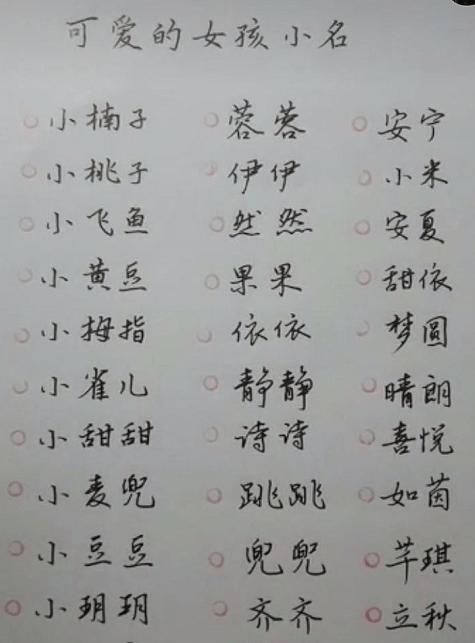 可爱的女孩小名
小楠子 蓉蓉 安宁
小桃子 伊伊 小米
小飞鱼 然然 安夏
小黄豆 果果 甜依
小拇指 依依 梦圆
小雀儿 静静 晴朗
小甜甜 诗诗 喜悦
小麦兜 跳跳 如茵
小豆豆 兜兜 芊琪
小玥玥 齐齐 立秋